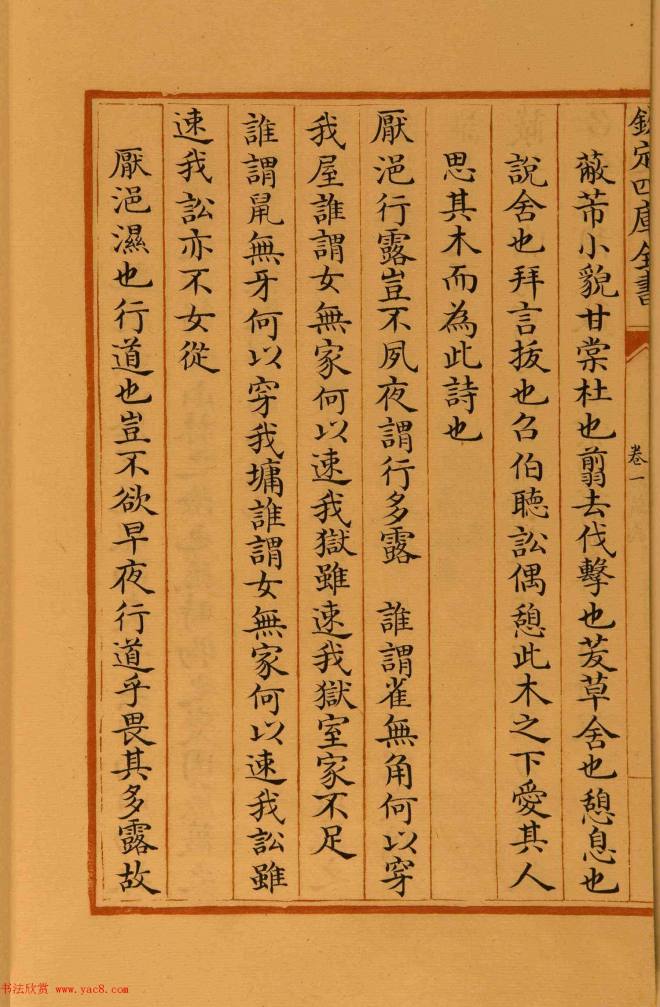 欽定四庫全書
卷一
蔽芾小貌甘棠杜也翦去伐擊也茇草舍也憩息也
說舍也拜言拔也召伯聽訟偶憩此木之下愛其人
思其木而為此詩也
厭浥行露豈不夙夜謂行多露　誰謂雀無角何以穿
我屋誰謂女無家何以速我獄雖速我獄室家不足
誰謂鼠無牙何以穿我墉誰謂女無家何以速我訟雖
速我訟亦不女從
厭浥濕也行道也豈不欲早夜行道乎畏其多露故
书法欣赏 www.yac8.com